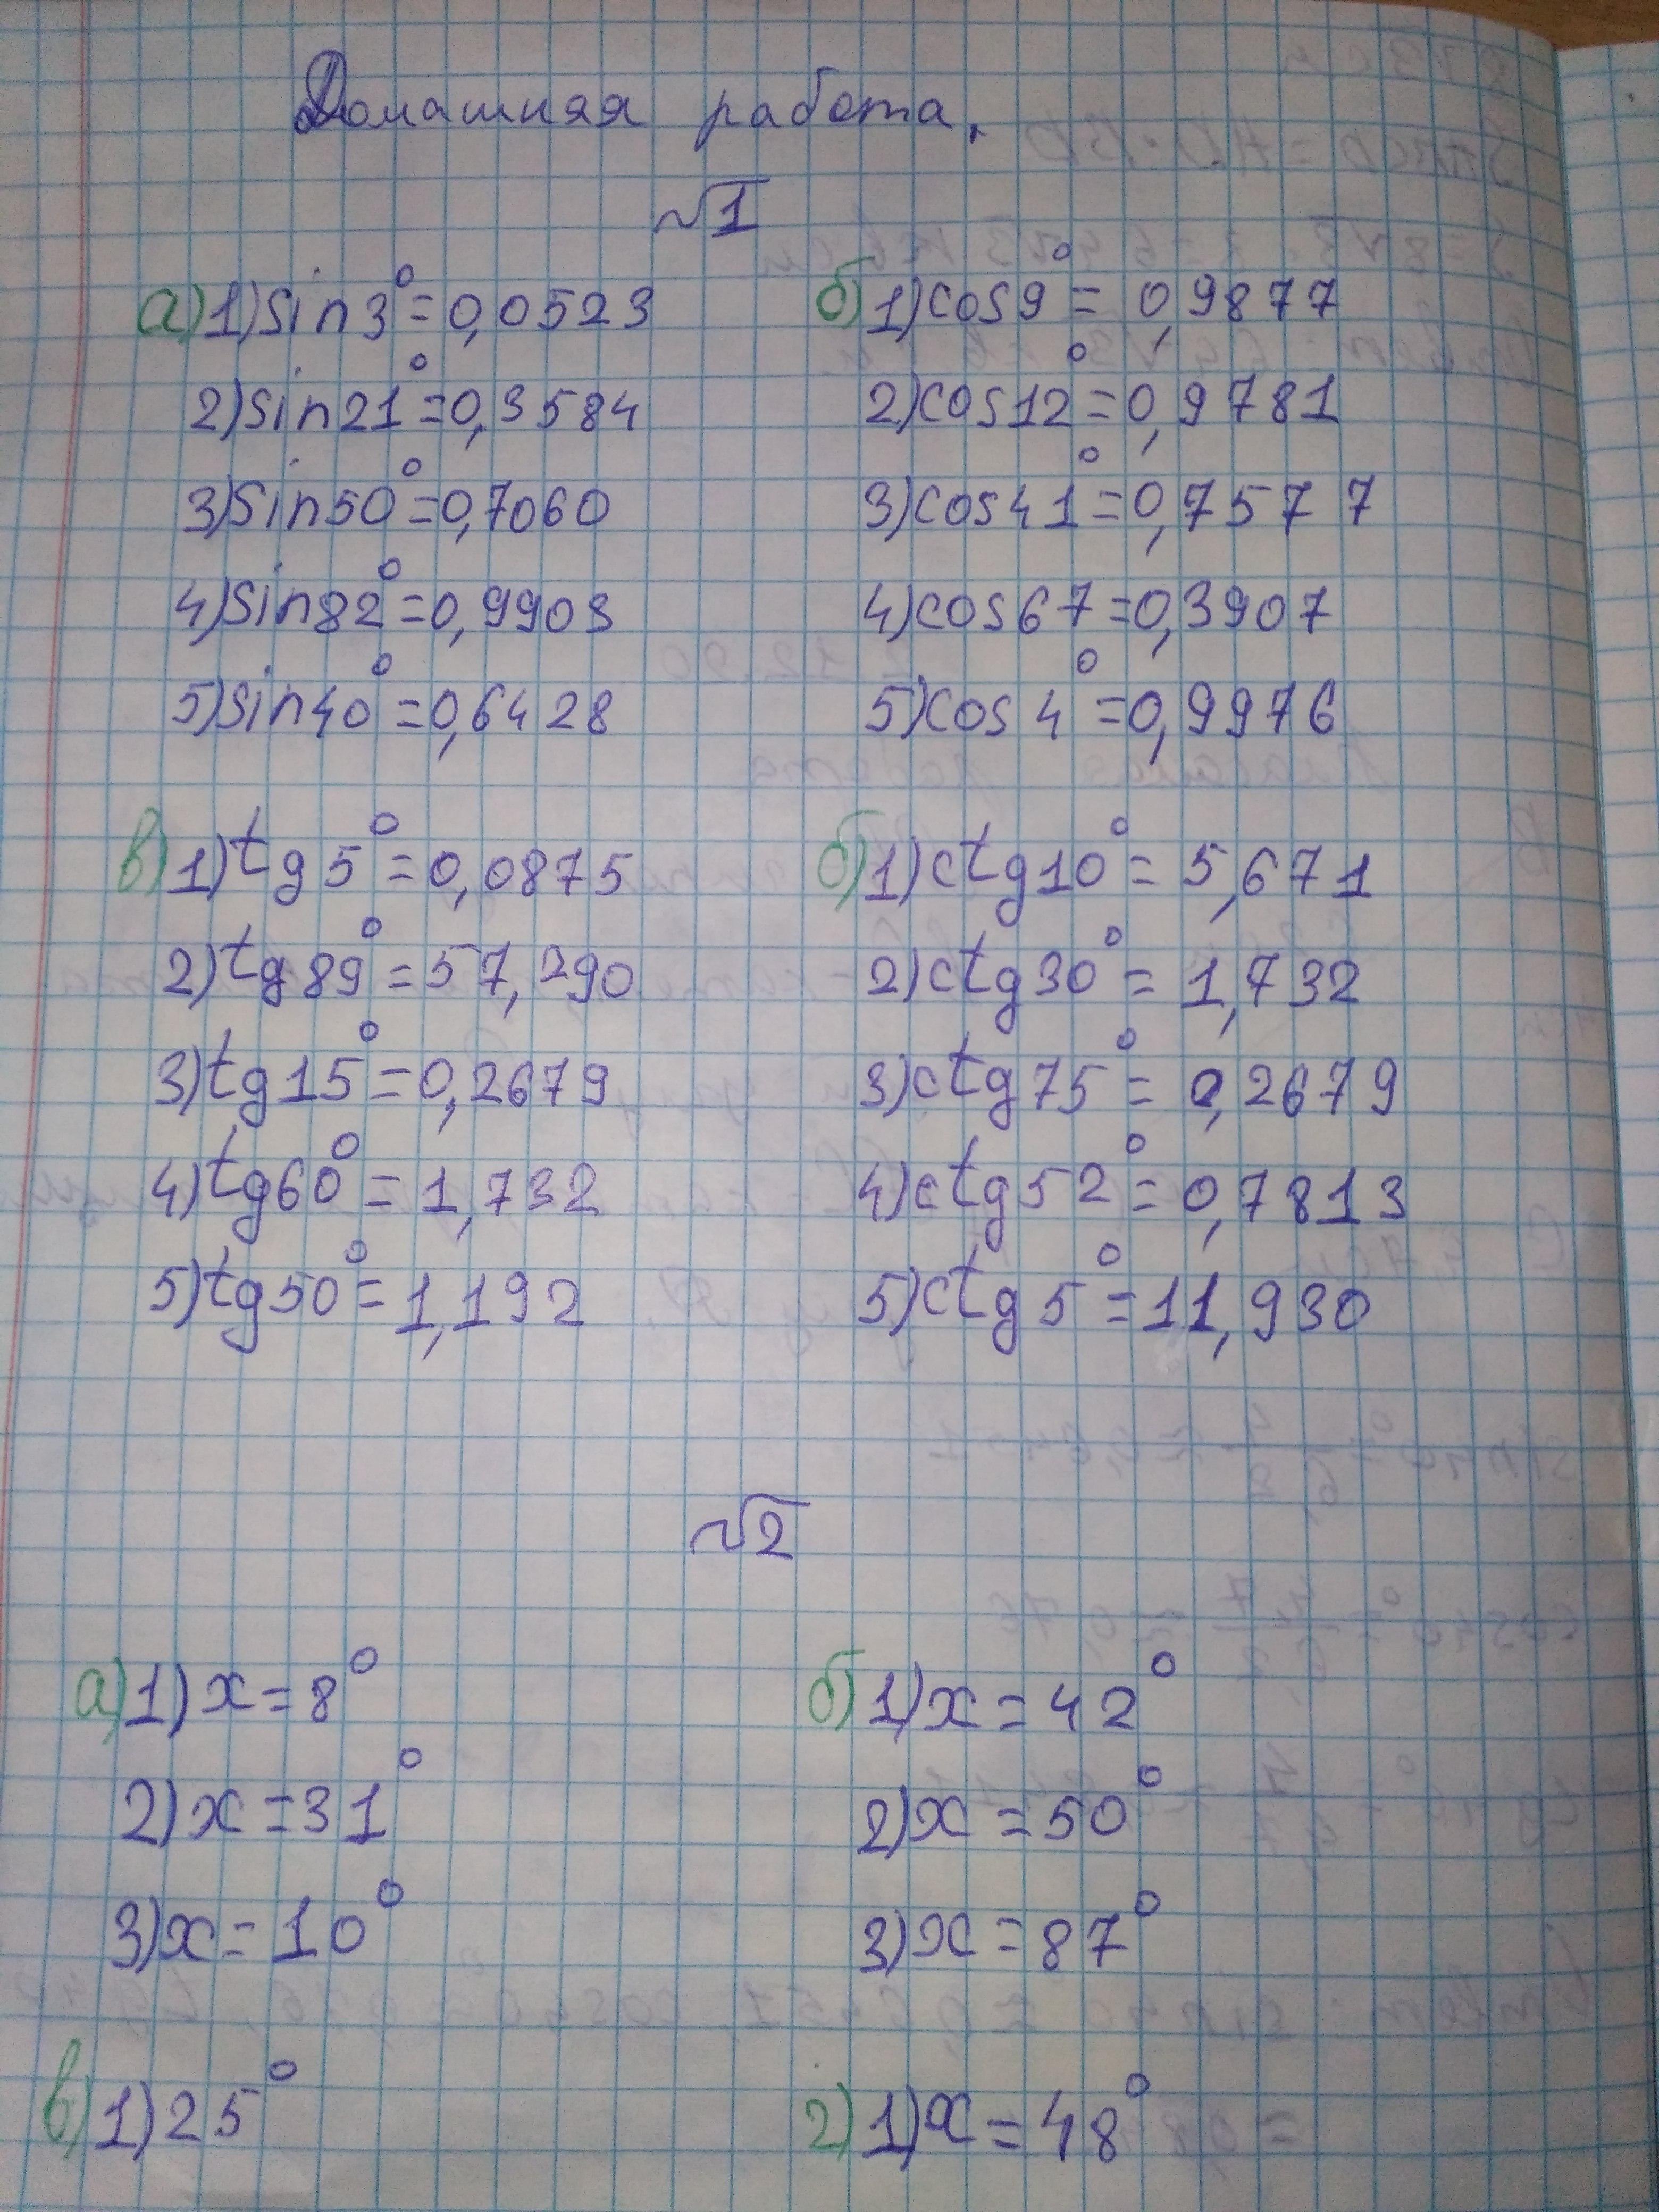 Домашняя работа.
№1
а) 1) sin3° = 0,0523
2) sin21° = 0,3584
3) sin50° = 0,7060
4) sin82° = 0,9903
5) sin40° = 0,6428
б) 1) cos9° = 0,9877
2) cos12° = 0,9781
3) cos41° = 0,7577
4) cos67 = 0,3907
5) cos4° = 0,9976
в) 1) tg5° = 0,0875
2) tg89° = 57,290
3) tg15° = 0,2679
4) tg60° = 1,732
5) tg50° = 1,192
б) 1) ctg10° = 5,671
2) ctg30° = 1,732
3) ctg75° = 0,2679
4) ctg52° = 0,7813
5) ctg5° = 11,930
№2
а) 1) x = 8°
2) x = 31°
3) x = 10°
б) 1) x = 42°
2) x = 50°
3) x = 87°
в) 1) 25°
г) 1) x = 48°